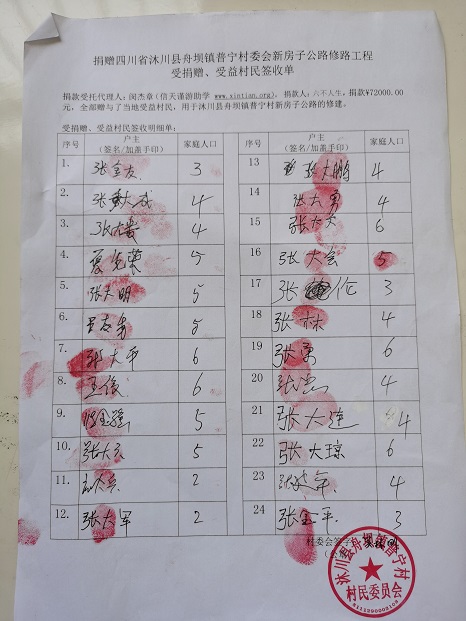 捐赠四川省沐川县舟坝镇普宁村委会新房子公路修路工程
受捐赠、受益村民签收单
捐款受托代理人：闵杰章(信天谨游助学 www.xintian.org)。捐款人：六不人生，捐款¥72000.00
元，全部赠与了当地受益村民，用于沐川县舟坝镇普宁村新房子公路的修建。
受捐赠、受益村民签收明细单：
序号 户主（签名/加盖手印） 家庭人口
1. 张金友 3
2. 张大成 4
3. 张大贵 4
4. 夏光荣 5
5. 张天明 5
6. 吕志勇 5
7. 郑大平 6
8. 王俊 6
9. 张金强 5
10. 张大 5
11. 2
12. 张大军 2
序号 户主（签名/加盖手印） 家庭人口
13 张大鹏 4
14 张大勇 4
15 张大 6
16 张大会 5
17 张 3
18 张林 4
19 张勇 6
20 张 4
21 张大连 4
22 张大琼 6
23 4
24 张金平 3
村委会签字
沐川县舟坝镇普宁村
村民委员会